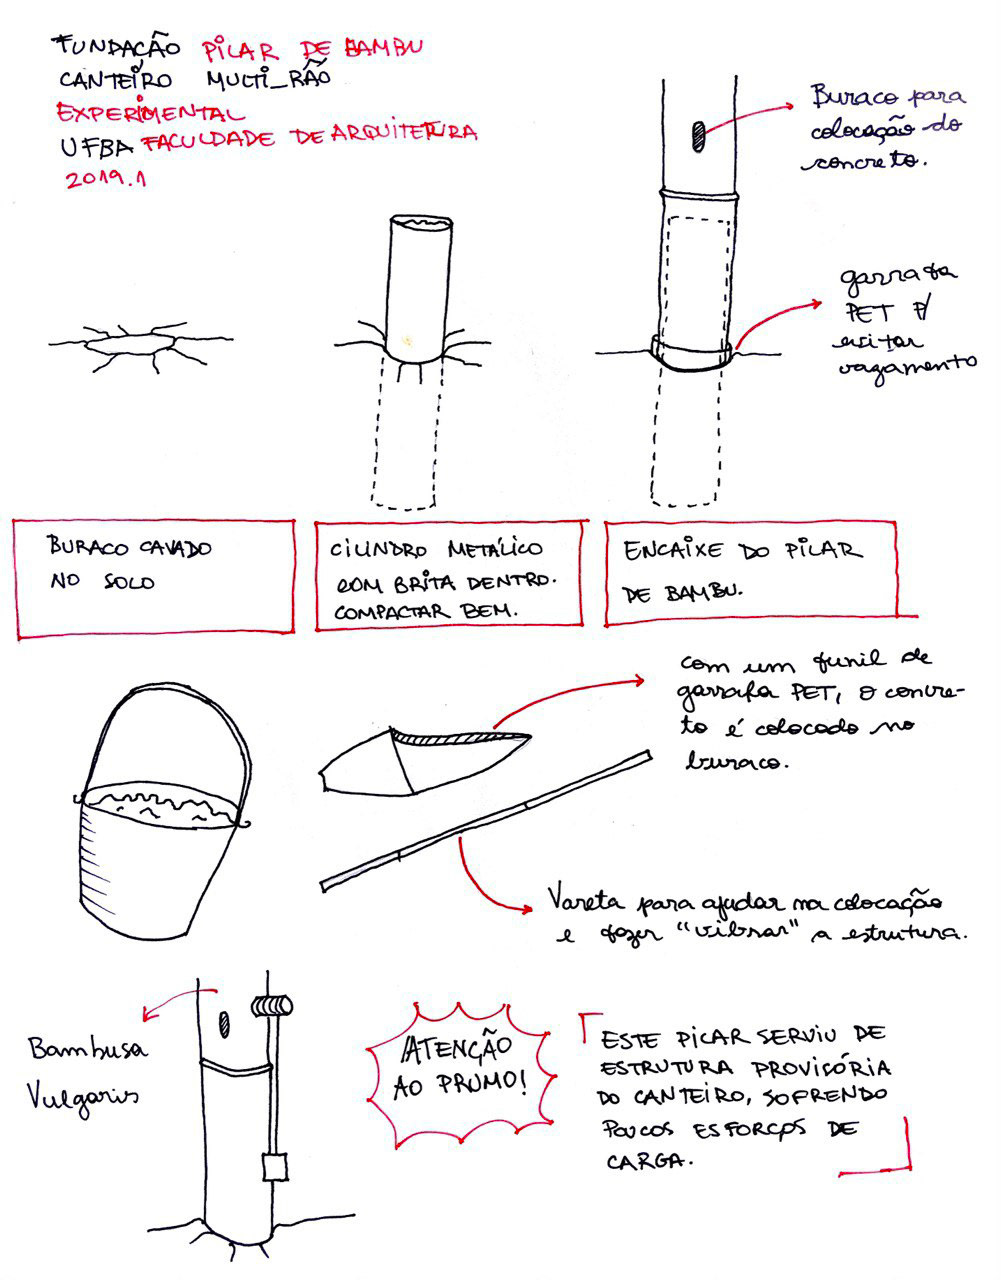 FUNDAÇÃO PILAR DE BAMBU
CANTEIRO MULTI_RÃO
EXPERIMENTAL
UFBA FACULDADE DE ARQUITETURA
2019.1
Buraco para
colocação do
concreto.
garrafa
PET P/
evitar
vazamento
BURACO CAVADO
NO SOLO
CILINDRO METÁLICO
COM BRITA DENTRO.
COMPACTAR BEM.
ENCAIXE DO PILAR
DE BAMBU.
com um funil de
garrafa PET, o concre-
to é colocado no
buraco.
Vareta para ajudar na colocação
e fazer "vibrar" a estrutura.
Bambusa
Vulgaris
ATENÇÃO
AO PRUMO!
ESTE PILAR SERVIU DE
ESTRUTURA PROVISÓRIA
DO CANTEIRO, SOFRENDO
POUCOS ESFORÇOS DE
CARGA.